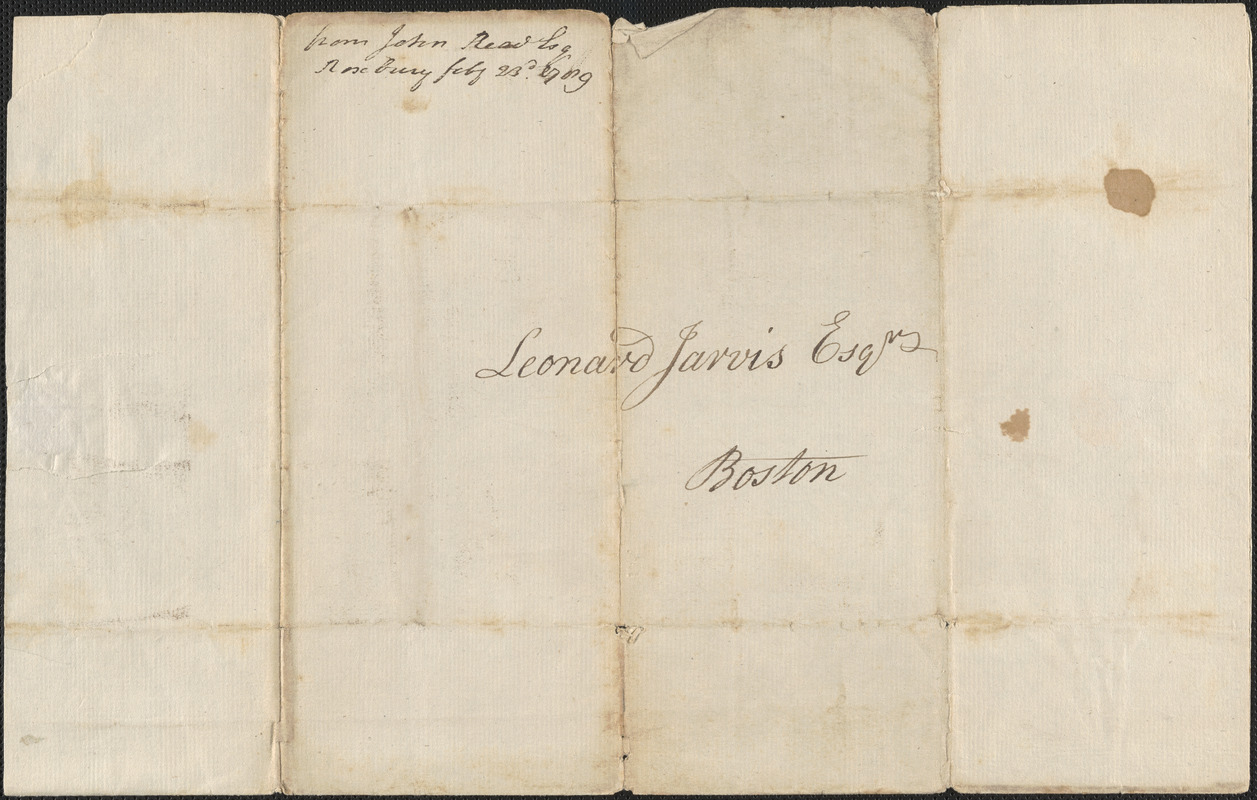 from John Read Esq
Roxbury feby 23d. 1789
Leonard Jarvis Esqrs
Boston